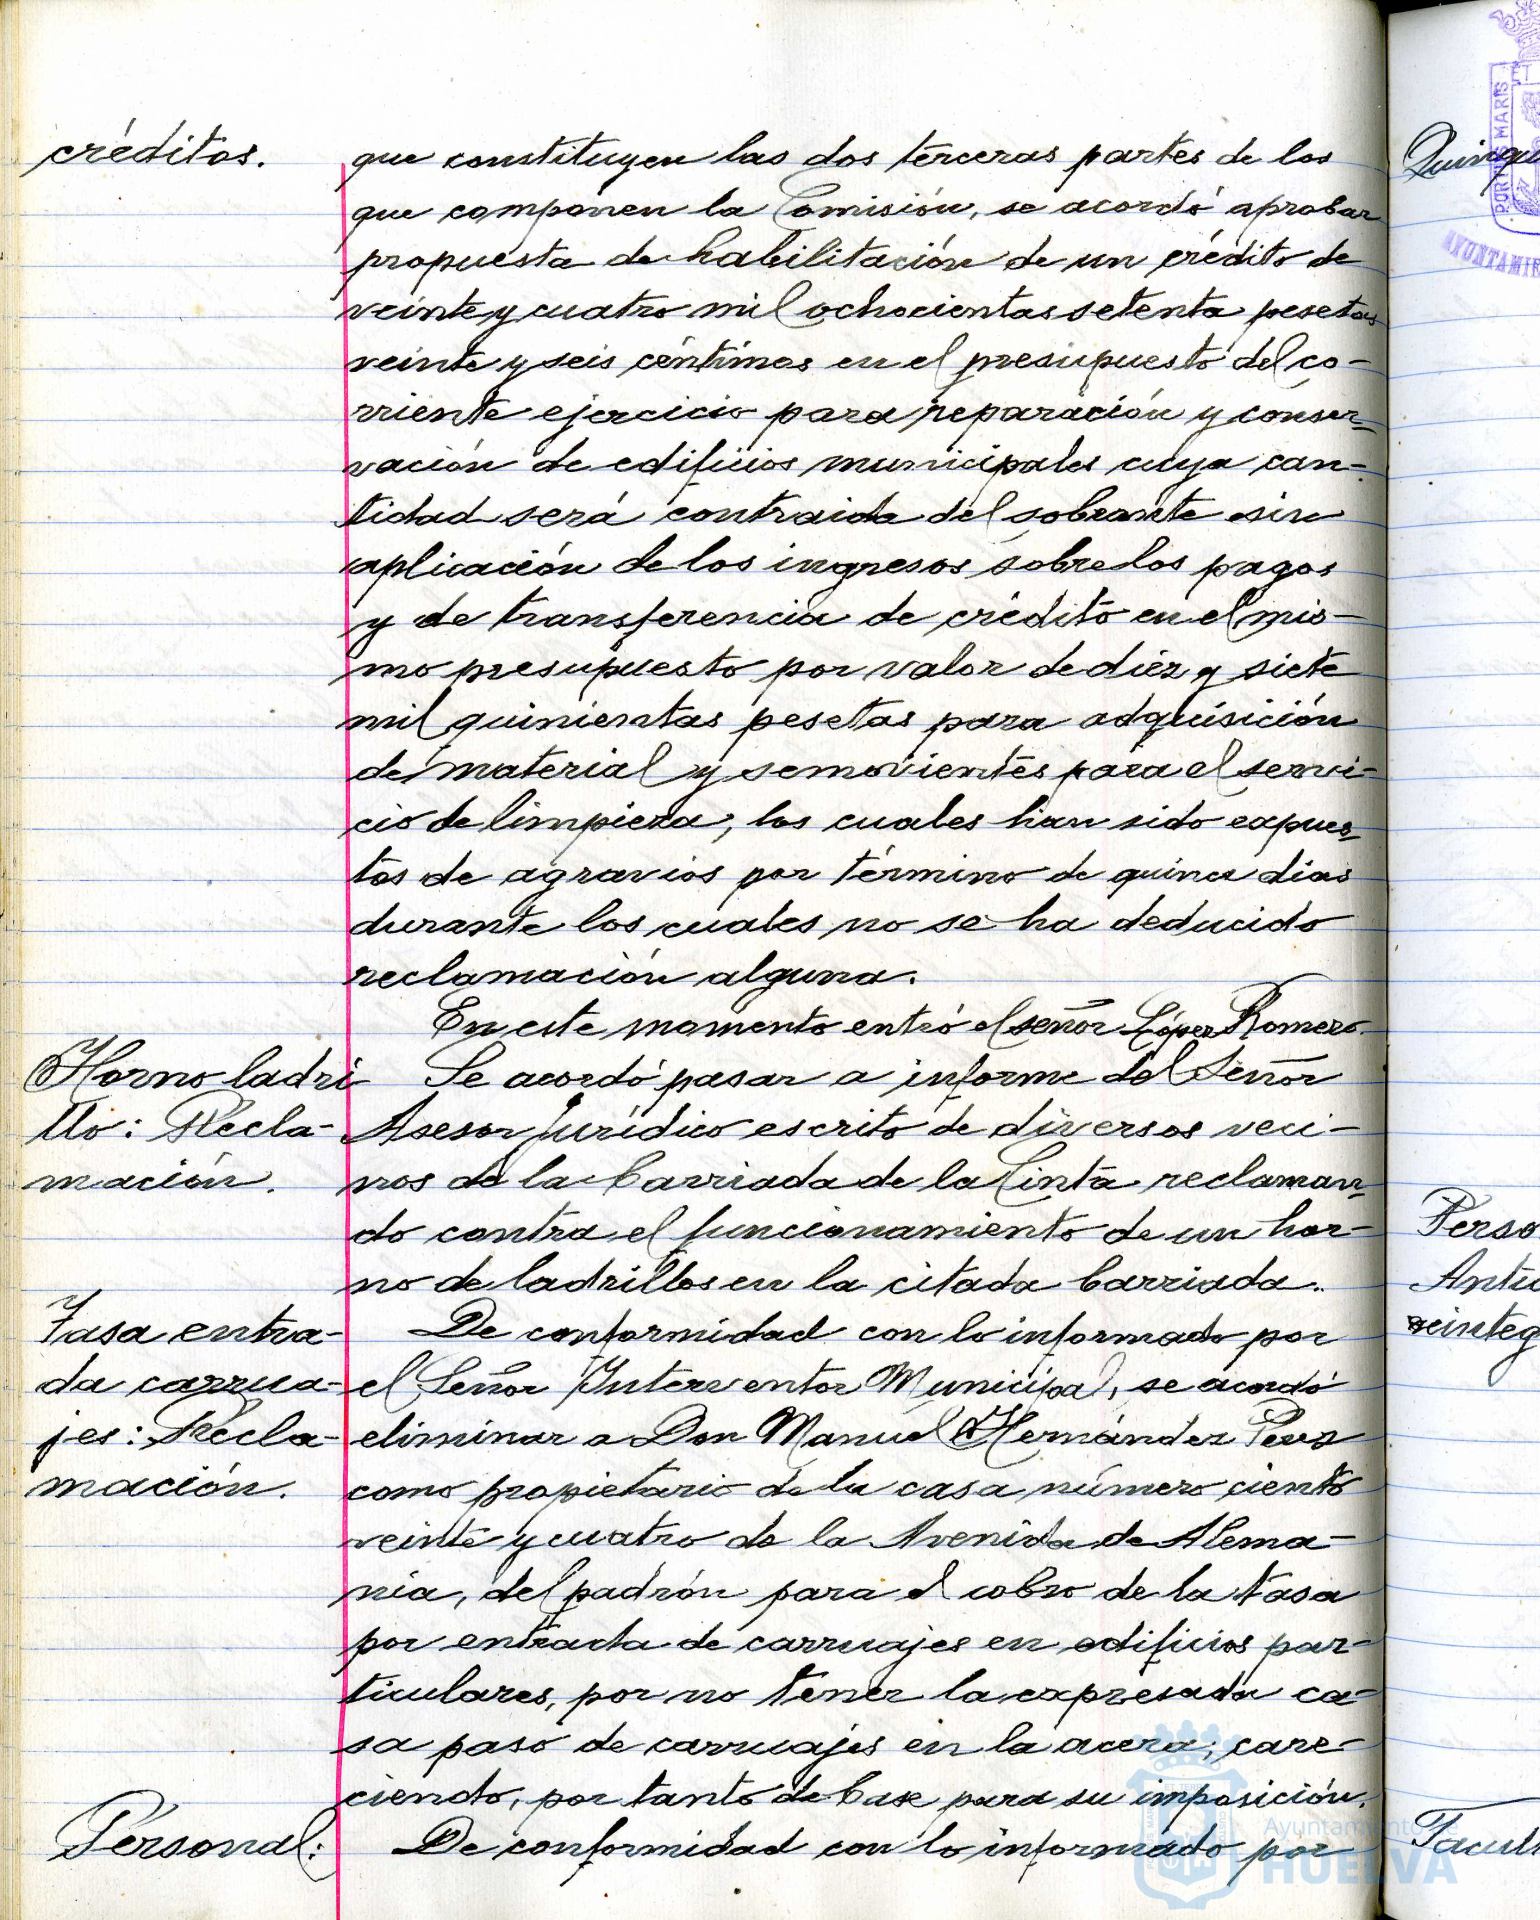 créditos.
que constituyen las dos terceras partes de los
que componen la Comisión, se acordó aprobar
propuesta de habilitación de un crédito de
veinte y cuatro mil ochocientas setenta pesetas
veinte y seis céntimos en el presupuesto del co-
rriente ejercicio para reparación y conser-
vación de edificios municipales cuya can-
tidad será contraida del sobrante sin
aplicación de los ingresos sobre los pagos
y de transferencia de crédito en el mis-
mo presupuesto por valor de diez y siete
mil quinientas pesetas para adquisición
de material y semovientes para el servi-
cio de limpieza, los cuales han sido expues-
tos de agravios por término de quince dias
durante los cuales no se ha deducido
reclamación alguna.
En este momento entró el señor López Romero.
Horno ladri
llo: Recla-
mación.
Se acordó pasar a informe del Señor
Asesor Jurídico escrito de diversos veci-
nos de la barriada de la Cinta reclaman-
do contra el funcionamiento de un hor-
no de ladrillos en la citada barriada.
Tasa entra-
da carrua-
jes: Recla-
mación.
De conformidad con lo informado por
el Señor Interventor Municipal, se acordó
eliminar a Don Manuel Hernández
como propietario de la casa número ciento
veinte y cuatro de la Avenida de Alema-
nia, del padrón para el cobro de la tasa
por entrada de carruajes en edificios par-
ticulares, por no tener la expresada ca-
sa paso de carruajes en la acera; care-
ciendo, por tanto de base para su imposición.
Personal:
De conformidad con lo informado por
Ayuntamiento de
HUELVA
PORTUS MARIS
ET
AYUNTAMIE
Quinqu
Perso
Antic
reinteg
Facult